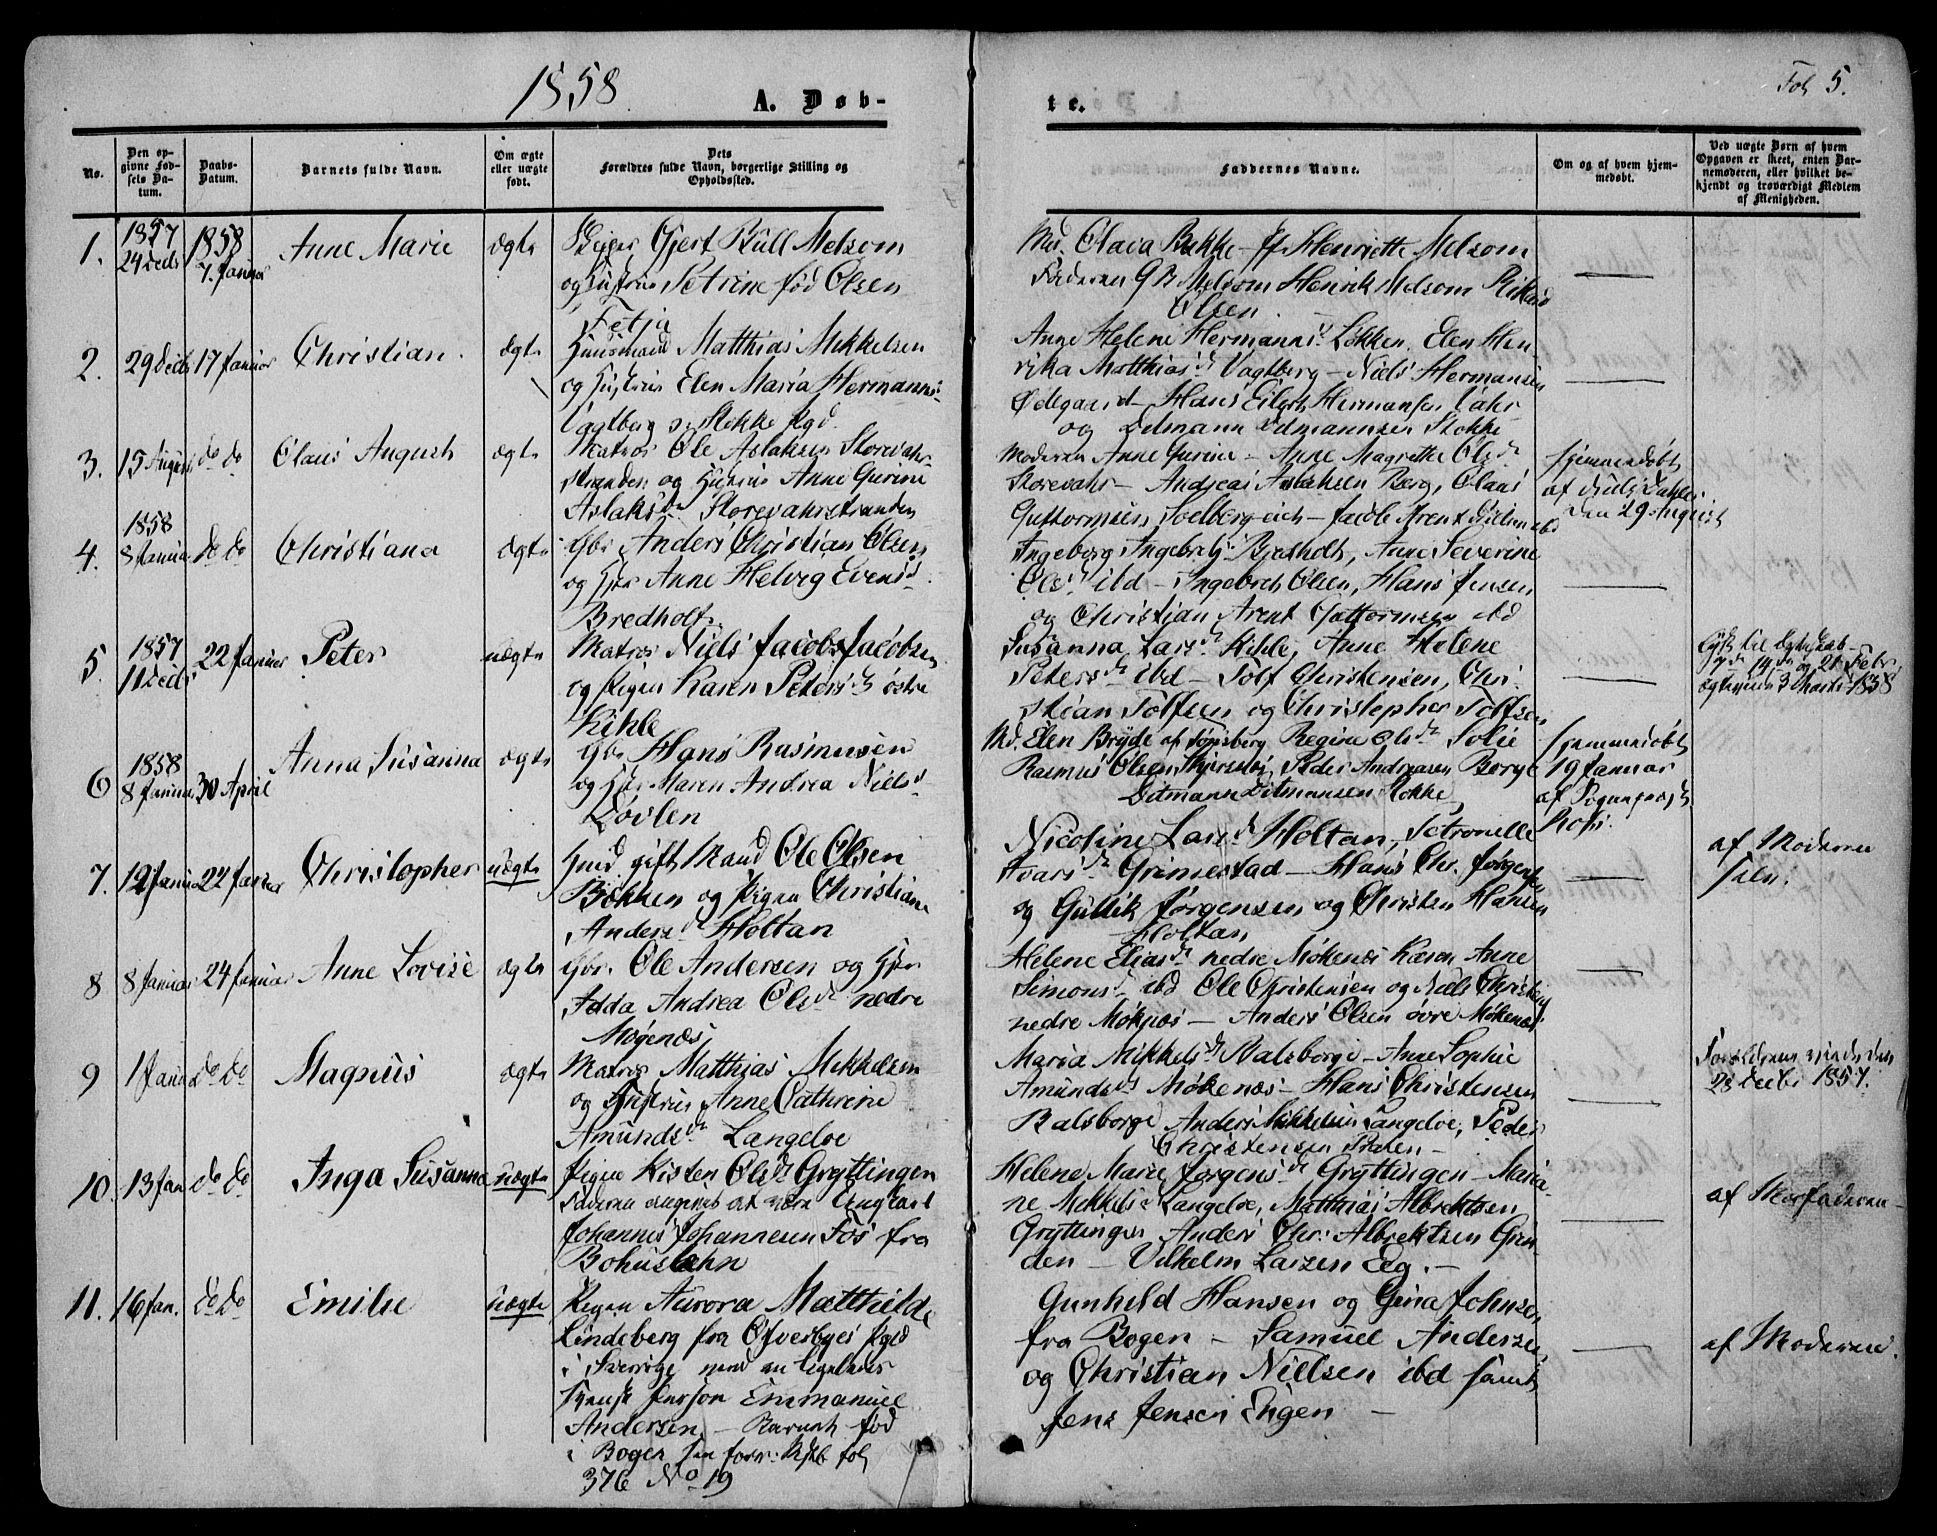 1858
A. Døb-
te.
Fol 5.
No.
Den op-
givne Fød-
sels Da-
tum.
Daabs-
Datum.
Barnets fulde Navn.
Om ægte
eller uægte
født.
Dets
Forældres fulde Navn, borgerlige Stilling og
Opholdssted.
Faddernes Navne.
Om og af hvem hjem-
medøbt.
Ved uægte Børn af hvem
Opgaven er skeet, enten Bar-
nemoderen, eller hvilket be-
kjendt og troværdigt Medlem
af Menigheden.
1.
1857
24 Decb
1858
7. Januar
Anne Marie
ægte
Gjert Bull Melsom
og Hustrue Petrine fød Olsen
Fetja
Md. Olava Bakke - Jf Henriette Melsom
Faderen G B Melsom Henrik Melsom Rikard
Olsen
2.
29 Decb
17 Januar
Christian
ægte
Huusmand Matthias Mikkelsen
og Hustrue Elen Maria Hermanns
Vagtberg Stokke Pgd.
Anne Helene Hermanns Løkken, Elen Hen-
rika Matthias Vagtberg - Niels Hermansen
Ødegaard - Hans Eilert Hermansen Vahr
og Ditmann Ditmannsen Stokke
3.
15 August
do do
Olaus August
ægte
Matros Ole Aslaksen Storevahr-
stranden og Hustrue Anne Gurine
Aslaksdr Storevahrstranden
Moderen Anne Gurine - Anne Magrethe Olsdr
Storevahr - Andreas Aslaksen Berg, Olaus
Guttormsen Solberg - Jacob Arent Nielsen ibd
hjemmedøbt
af
den 29 August
4.
1858
8 Januar
do do
Christiana
ægte
Gbr Anders Christian Olsen
og Hstr Anne Helvig Evens
Bredholt
Ingeborg Ingebretsdr Bredholt, Anne Severine
Olsdr ibd - Ingebret Olsen, Hans Jensen
og Christian Arent Guttormsen ibd
5
1857
11 Decb
22 Januar
Peter
uægte
Matros Niels Jacob Jacobsen
og Pigen Karen Petersdr østre
Kihle
Susanna Larsdr Kihle, Anne Helene
Petersdr ibd - Tolf Christensen, Chri-
stian Tolfsen og Christopher Tolfsen
Lyst til Ægteskab
7de 14de og 21 Febr.
ægteviet 3 Marts 1858
6
1858
8 Januar
30 April
Anna Susanna
ægte
Gbr Hans Rasmusen
og Hstr Maren Andrea Niels
Døvlen
Md. Elen Bryde af Tønsberg Regine Olsdr Solie
Rasmus Olsen Peder Andreasen Berge
Ditmann Ditmansen Stokke
hjemmedøbt
19 Januar
af Sognepræst
7.
12 Januar
24 Januar
Christopher
uægte
Gmd gift Mand Ole Olsen
Bakken og Pigen Christiane
Andersdr Holtan
Nicoline Larsdr Holtan, Petronelle
Ivarsdr Grimestad - Hans Chr. Jørgensen
og Guttik Jørgensen og Christen Hansen
Holtan
af Moderen
selv.
8
8 Januar
24 Januar
Anne Lovise
ægte
Gbr. Ole Andersen og Hstr
Adda Andrea Olsdr nedre
Møgenæs
Helene Eliasdr nedre Møkenæs Karen Anne
Simonsdr ibd Ole Christensen og Niels Christens
nedre Møkenæs - Anders Olsen øvre Møkenæs
9
1 Januar
do do
Magnus
ægte
Matros Matthias Mikkelsen
og Hustrue Anne Cathrine
Amundsdr Langeløe
Maria Mikkelsdr Balsborge - Anne Sophie
Amundsdr Møkenæs - Hans Christensen
Balsborge Anders Mikkelsen Langeløe, Peder
Christensen
Forældrene viede den
28 Decbr 1857.
10.
13 Jan
do do
Inga Susanne
uægte
Pigen Kirsten Olsdr Gryttingen
Faderen angives at være Ungkarl
Johannes Johannesen Fos fra
Bohuslehn
Helene Marie Jørgensdr Gryttingen - Maria-
ne Mikkelsdr Langeløe, Matthias Albrektsen
Gryttingen Anders Chr: Albrektsen Grin-
den - Vilhelm Larsen Eeg. -
af Morfaderen
11.
16 Jan.
do do
Emilie
uægte
Pigen Aurora Matthilde
Lindeberg fra Øfverbyes Pgd
i Sverrige med en
svensk Person Emmanuel
Andersen, - Barnet fød
i Bogen
376 No 19
Gunhild Hansen og Gina Johnsen
fra Bogen - Samuel Andersen
og Christian Nielsen ibd samt
Jens Jensen Engen -
af Moderen.